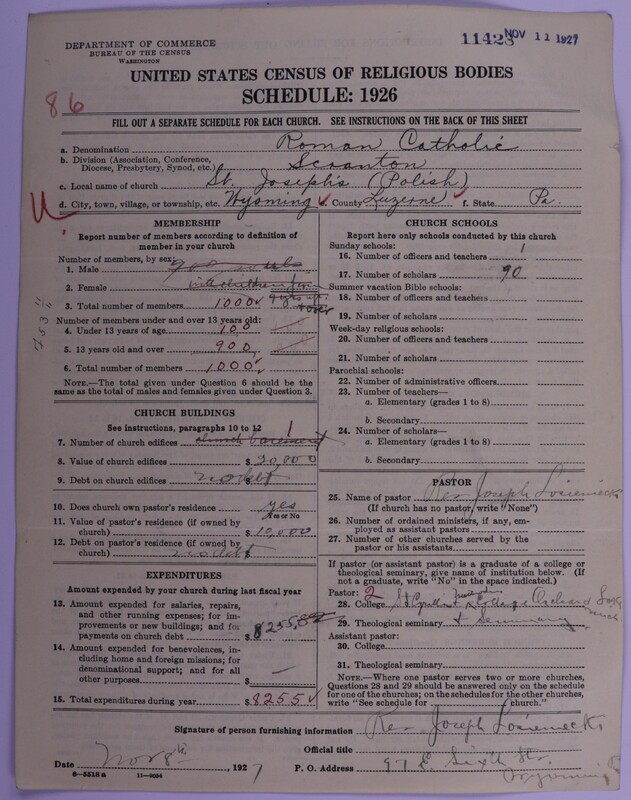 DEPARTMENT OF COMMERCE
BUREAU OF THE CENSUS
WASHINGTON
11428 NOV 11 1927
UNITED STATES CENSUS OF RELIGIOUS BODIES
SCHEDULE: 1926
86
FILL OUT A SEPARATE SCHEDULE FOR EACH CHURCH. SEE INSTRUCTIONS ON THE BACK OF THIS SHEET
a. Denomination Roman Catholic
b. Division (Association, Conference, Diocese, Presbytery, Synod, etc.) Scranton
c. Local name of church St. Joseph's (Polish)
d. City, town, village, or township, etc. Wyoming e. County Luzerne f. State Pa.
MEMBERSHIP
Report number of members according to definition of member in your church
Number of members, by sex:
1. Male 900 souls
2. Female
3. Total number of members 1000
Number of members under and over 13 years old:
4. Under 13 years of age 100
5. 13 years old and over 900
6. Total number of members 1000
NOTE.—The total given under Question 6 should be the same as the total of males and females given under Question 3.
CHURCH BUILDINGS
See instructions, paragraphs 10 to 12
7. Number of church edifices church basement 1
8. Value of church edifices $ 20,000
9. Debt on church edifices no debt
10. Does church own pastor's residence yes
Yes or No
11. Value of pastor's residence (if owned by church) $ 10,000
12. Debt on pastor's residence (if owned by church) no debt
EXPENDITURES
Amount expended by your church during last fiscal year
13. Amount expended for salaries, repairs, and other running expenses; for improvements or new buildings; and for payments on church debt $ 8255.82
14. Amount expended for benevolences, including home and foreign missions; for denominational support; and for all other purposes $ —
15. Total expenditures during year $ 8255
CHURCH SCHOOLS
Report here only schools conducted by this church
Sunday schools:
16. Number of officers and teachers 1
17. Number of scholars 90
Summer vacation Bible schools:
18. Number of officers and teachers
19. Number of scholars
Week-day religious schools:
20. Number of officers and teachers
21. Number of scholars
Parochial schools:
22. Number of administrative officers
23. Number of teachers—
a. Elementary (grades 1 to 8)
b. Secondary
24. Number of scholars—
a. Elementary (grades 1 to 8)
b. Secondary
PASTOR
25. Name of pastor Rev Joseph Losieniecki
(If church has no pastor, write "None")
26. Number of ordained ministers, if any, employed as assistant pastors
27. Number of other churches served by the pastor or his assistants
If pastor (or assistant pastor) is a graduate of a college or theological seminary, give name of institution below. (If not a graduate, write "No" in the space indicated.)
Pastor: 2
28. College Orchard Lake Mich.
29. Theological seminary & Seminary
Assistant pastor:
30. College
31. Theological seminary
NOTE.—Where one pastor serves two or more churches, Questions 28 and 29 should be answered only on the schedule for one of the churches; on the schedules for the other churches, write "See schedule for church."
Signature of person furnishing information Rev Joseph Losieniecki
Official title
Date Nov 8th, 1927 P. O. Address 97 E Sixth St.
Wyoming Pa
8—5518 a 11—9054